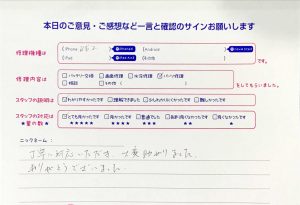 本日のご意見・ご感想など一言と確認のサインお願いします
修理機種は
iPhone
Android
iPad
その他
です。
修理内容は
バッテリー交換
画面修理
水没修理
その他
をしてもらいました。
スタッフの説明は
わかりやすかったです
理解できました
少しわかりにくかったです
難しかったです
スタッフの対応は
★星の数★
とても良かったです
良かったです
普通でした
あまり良くなかったです
良くなかったです
★★★★★
★★★★
★★★
★★
★
ニックネーム：
丁寧に対応いただき、大変助かりました。
ありがとうございました